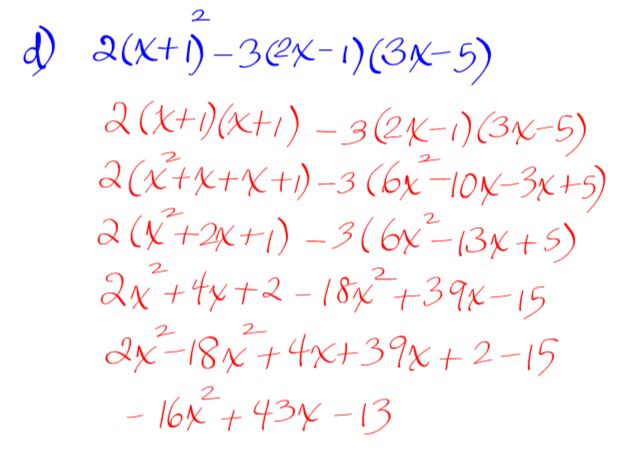 d) 2(x+1)² - 3(2x-1)(3x-5)
2(x+1)(x+1) - 3(2x-1)(3x-5)
2(x²+x+x+1) - 3(6x²-10x-3x+5)
2(x²+2x+1) - 3(6x²-13x+5)
2x²+4x+2 - 18x²+39x-15
2x²-18x²+4x+39x+2-15
-16x²+43x-13